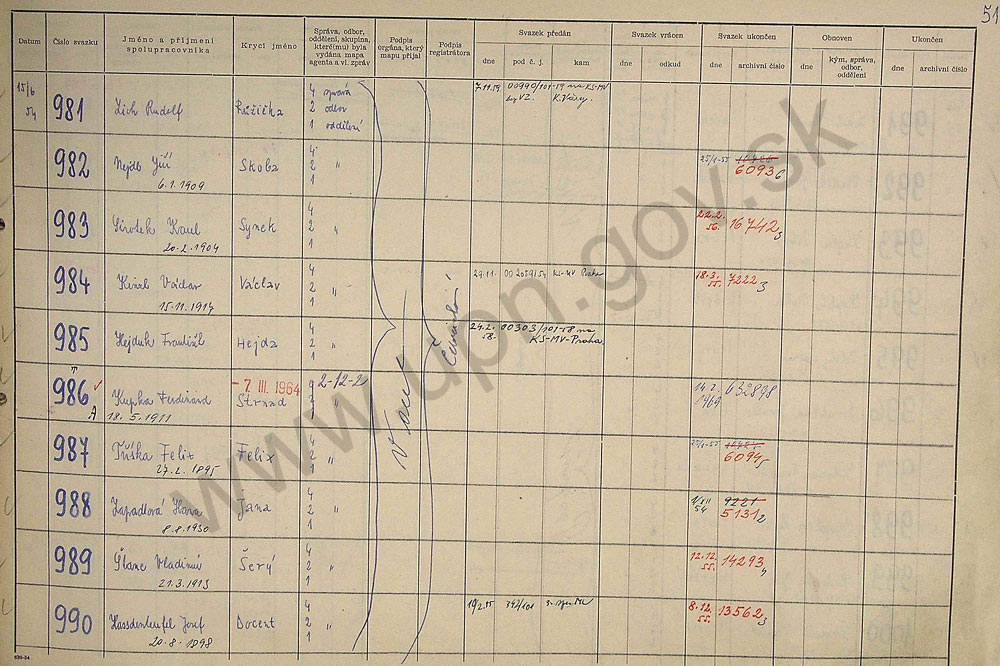 51
Datum
Číslo svazku
Jméno a příjmení
spolupracovníka
Krycí jméno
Správa, odbor,
oddělení, skupina,
které(mu) byla
vydána mapa
agenta a vl. zpráv
Podpis
orgána, který
mapu přijal
Podpis
registrátora
Svazek předán
dne
pod č. j.
kam
Svazek vrácen
dne
odkud
Svazek ukončen
dne
archivní číslo
Obnoven
dne
kým, správa,
odbor,
oddělení
Ukončen
dne
archivní číslo
15/6
54
981
Zich Rudolf
Růžička
4 správa
2 odbor
1 oddělení
7.11.59
00990/101-59 na KS-MV
K. Vary.
982
Nejdl Jiří
6.1.1909
Skoba
4
2 "
1
25/1-55
6093 6
983
Sirotek Karel
20.2.1904
Synek
4
2 "
1
22.2.
56.
16742 3
984
Václav
15.11.1914
Václav
4
2 "
1
29.11.
KS-MV Praha
18.3.
55.
7222 3
985
Hejduk František
Hejda
4
2 "
1
24.2.
58.
00303/101-58 na
KS-MV-Praha.
986
A
Kupka Ferdinand
18.5.1911
- 7. III. 1964
Strnad
2-12-2
14.2.
1969
632898
987
Tůška Felix
27.2.1895
Felix
4
2 "
1
25/1-55
6094 5
988
Zapadlová Hana
8.8.1930
Jana
4
2 "
1
54
9221
5131 2
989
Vladimír
21.3.1913
Šerý
4
2 "
1
12.12.
55.
14293 4
990
Hassdenteufel Josef
20.8.1898
Docent
4
2 "
1
19/2.55
8.12.
55.
13562 3
www.upn.gov.sk